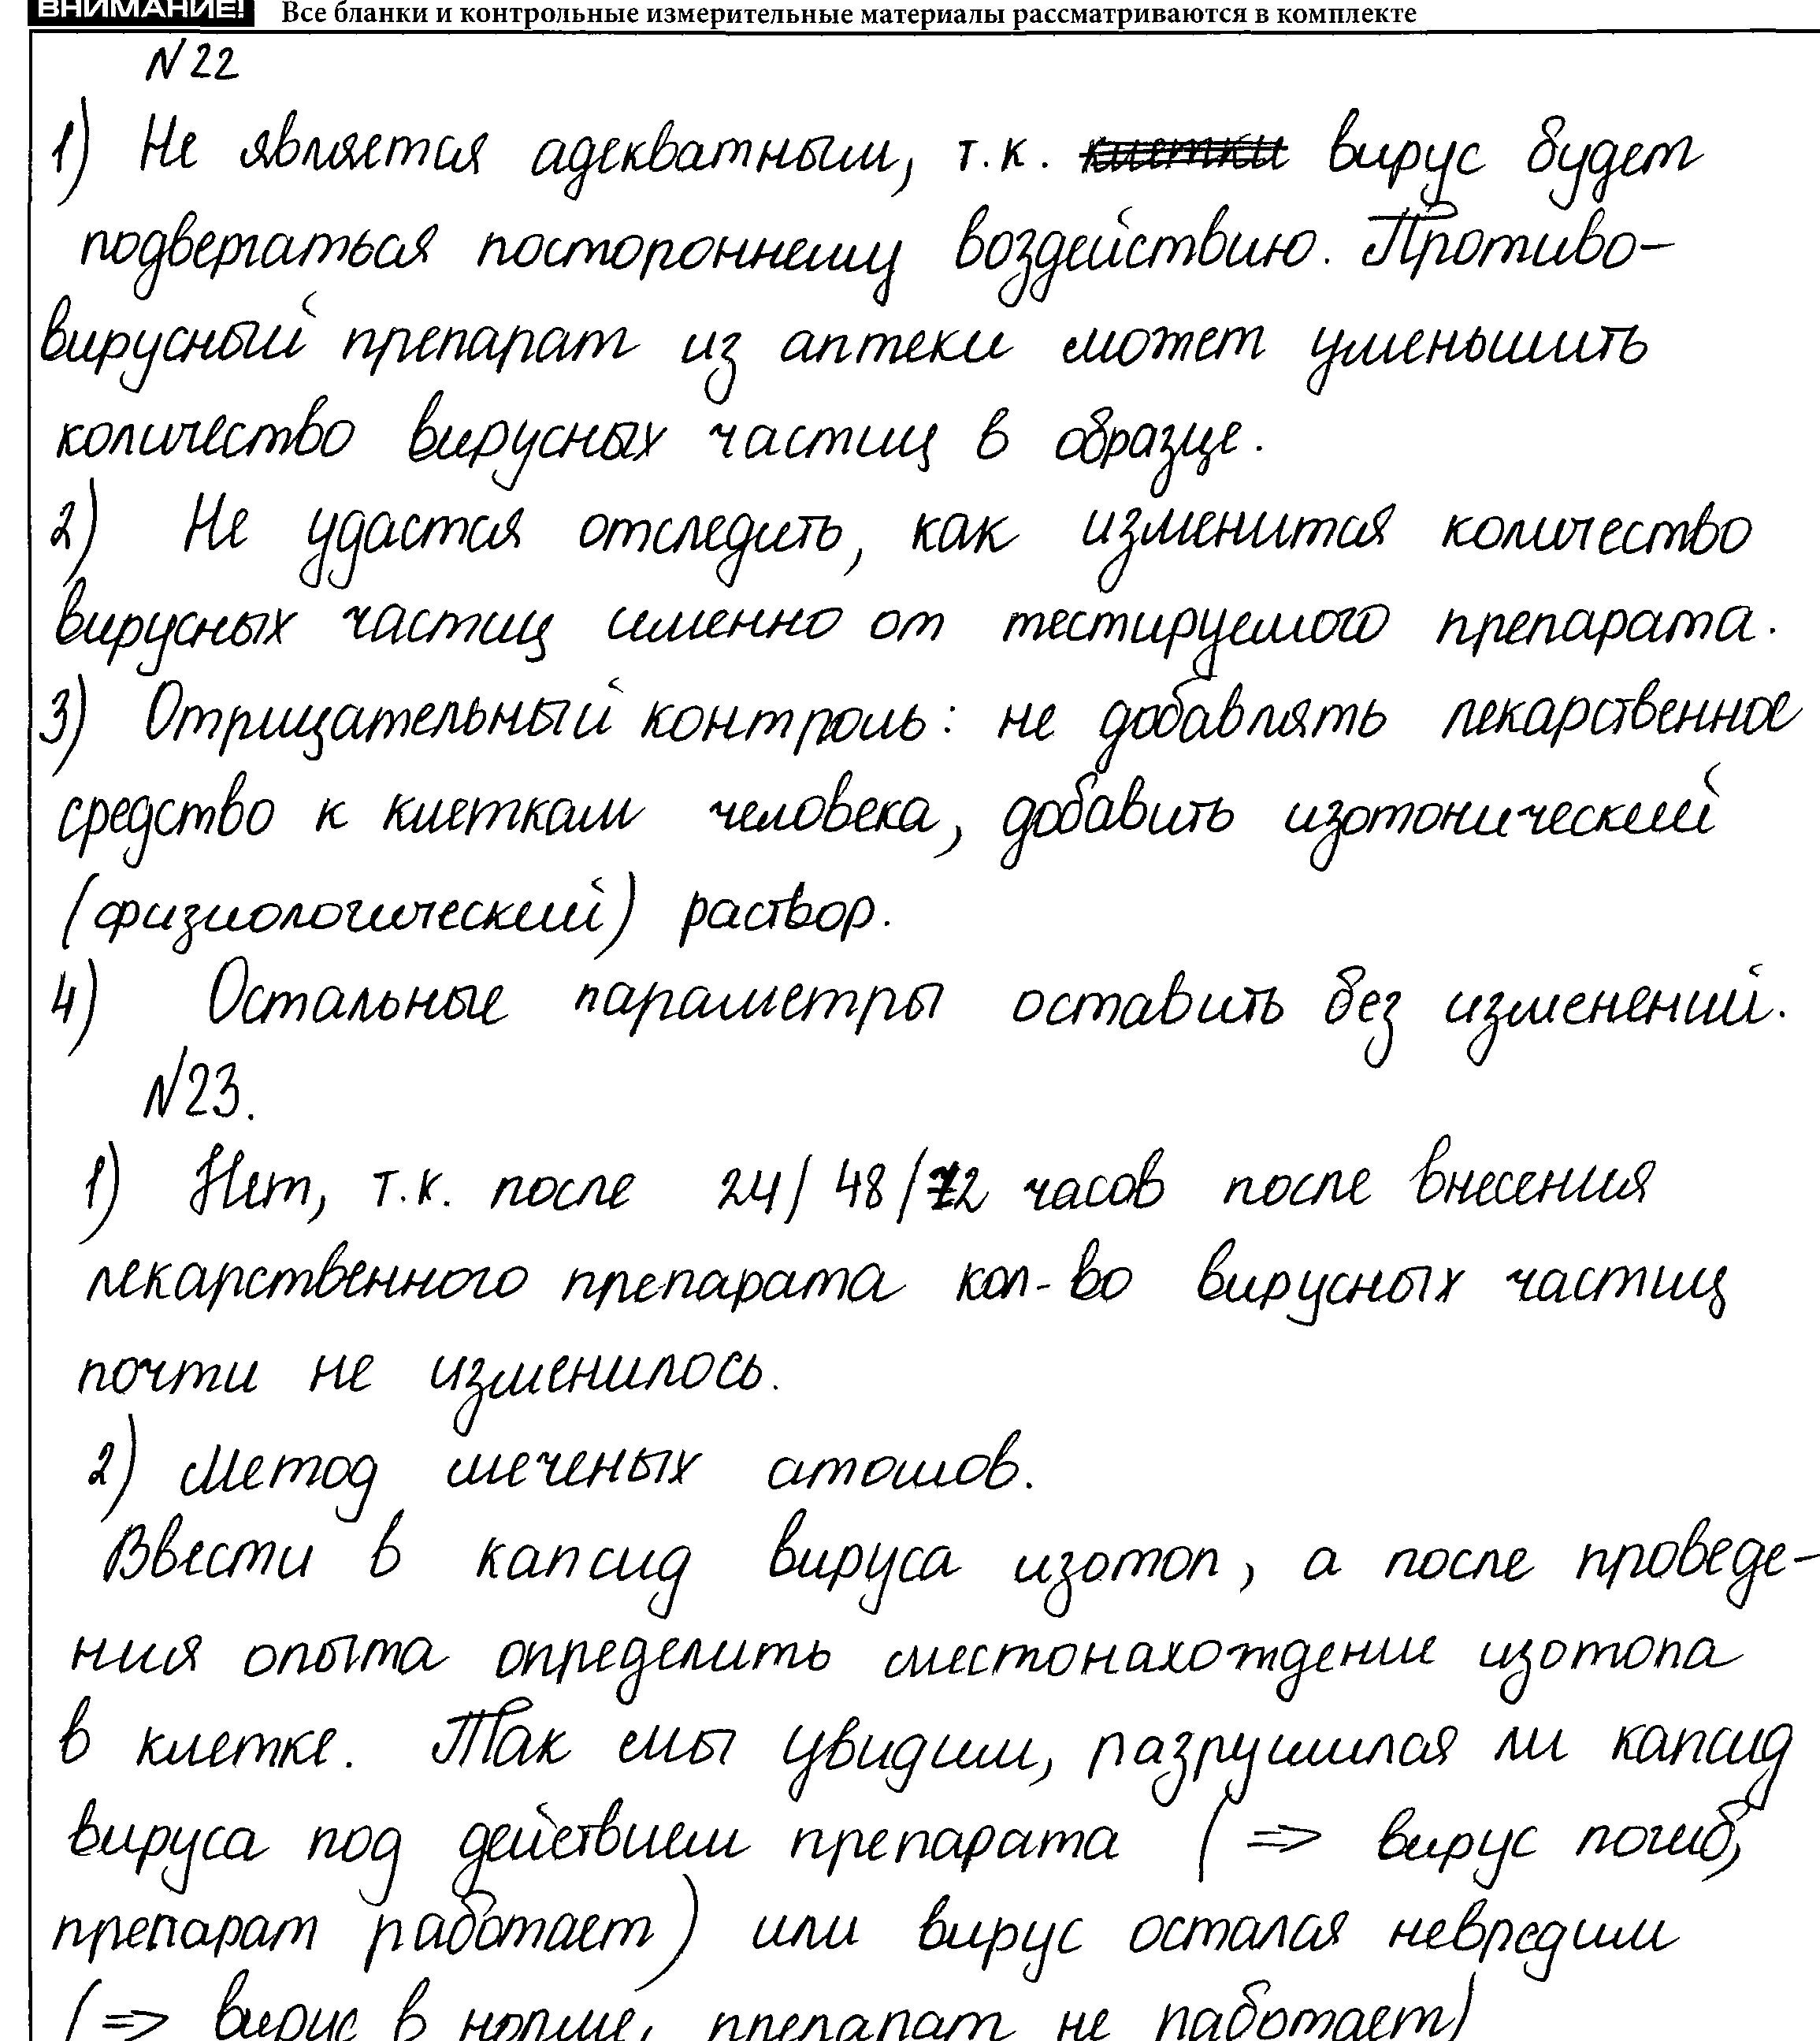 ВНИМАНИЕ! Все бланки и контрольные измерительные материалы рассматриваются в комплекте
N22
1) Не является адекватным, т.к. клетки вирус будет
подвергаться постороннему воздействию. Противо-
вирусный препарат из аптеки может уменьшить
количество вирусных частиц в образце.
2) Не удастся отследить, как изменится количество
вирусных частиц именно от тестируемого препарата.
3) Отрицательный контроль: не добавлять лекарственное
средство к клеткам человека, добавить изотонический
(физиологический) раствор.
4) Остальные параметры оставить без изменений.
N23.
1) Нет, т.к. после 24/48/72 часов после внесения
лекарственного препарата кол-во вирусных частиц
почти не изменилось.
2) Метод меченых атомов.
Ввести в капсид вируса изотоп, а после проведе-
ния опыта определить местонахождение изотопа
в клетке. Так мы увидим, разрушился ли капсид
вируса под действием препарата (=> вирус погиб,
препарат работает) или вирус остался невредим
(=> вирус в норме, препарат не работает)